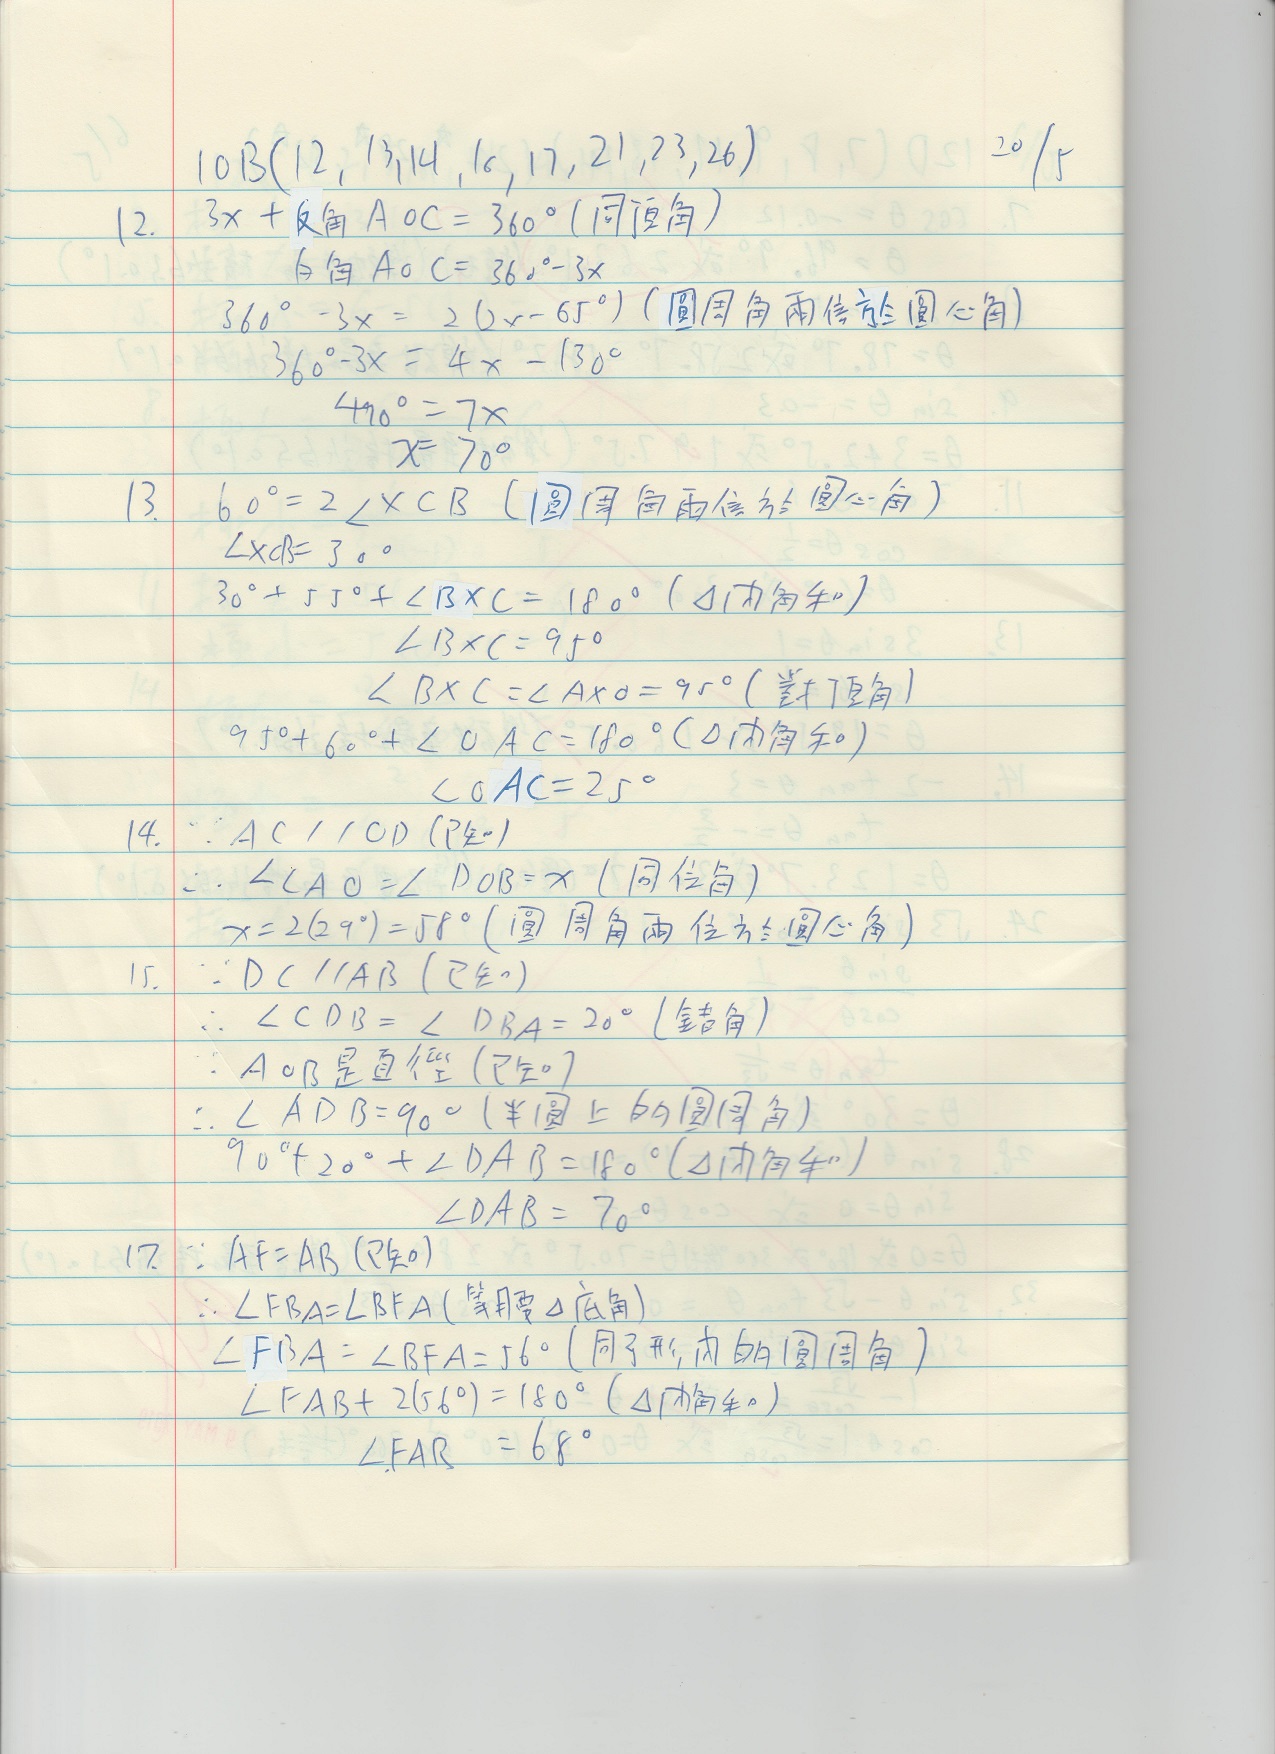 10B(12, 13, 14, 16, 17, 21, 23, 26) 20/5
12. 3x + 反角 AOC = 360° (同頂角)
反角 AOC = 360° - 3x
360° - 3x = 2(2x - 65°) (圓周角兩倍於圓心角)
360° - 3x = 4x - 130°
490° = 7x
x = 70°
13. 60° = 2∠XCB (圓周角兩倍於圓心角)
∠XCB = 30°
30° + 55° + ∠BXC = 180° (△內角和)
∠BXC = 95°
∠BXC = ∠AXO = 95° (對頂角)
95° + 60° + ∠OAC = 180° (△內角和)
∠OAC = 25°
14. ∵ AC//OD (已知)
∴ ∠CAO = ∠DOB = x (同位角)
x = 2(29°) = 58° (圓周角兩倍於圓心角)
15. ∵ DC//AB (已知)
∴ ∠CDB = ∠DBA = 20° (錯角)
∵ AOB是直徑 (已知)
∴ ∠ADB = 90° (半圓上的圓周角)
90° + 20° + ∠DAB = 180° (△內角和)
∠DAB = 70°
17. ∵ AF = AB (已知)
∴ ∠FBA = ∠BFA (等腰△底角)
∠FBA = ∠BFA = 56° (同弓形內的圓周角)
∠FAB + 2(56°) = 180° (△內角和)
∠FAB = 68°